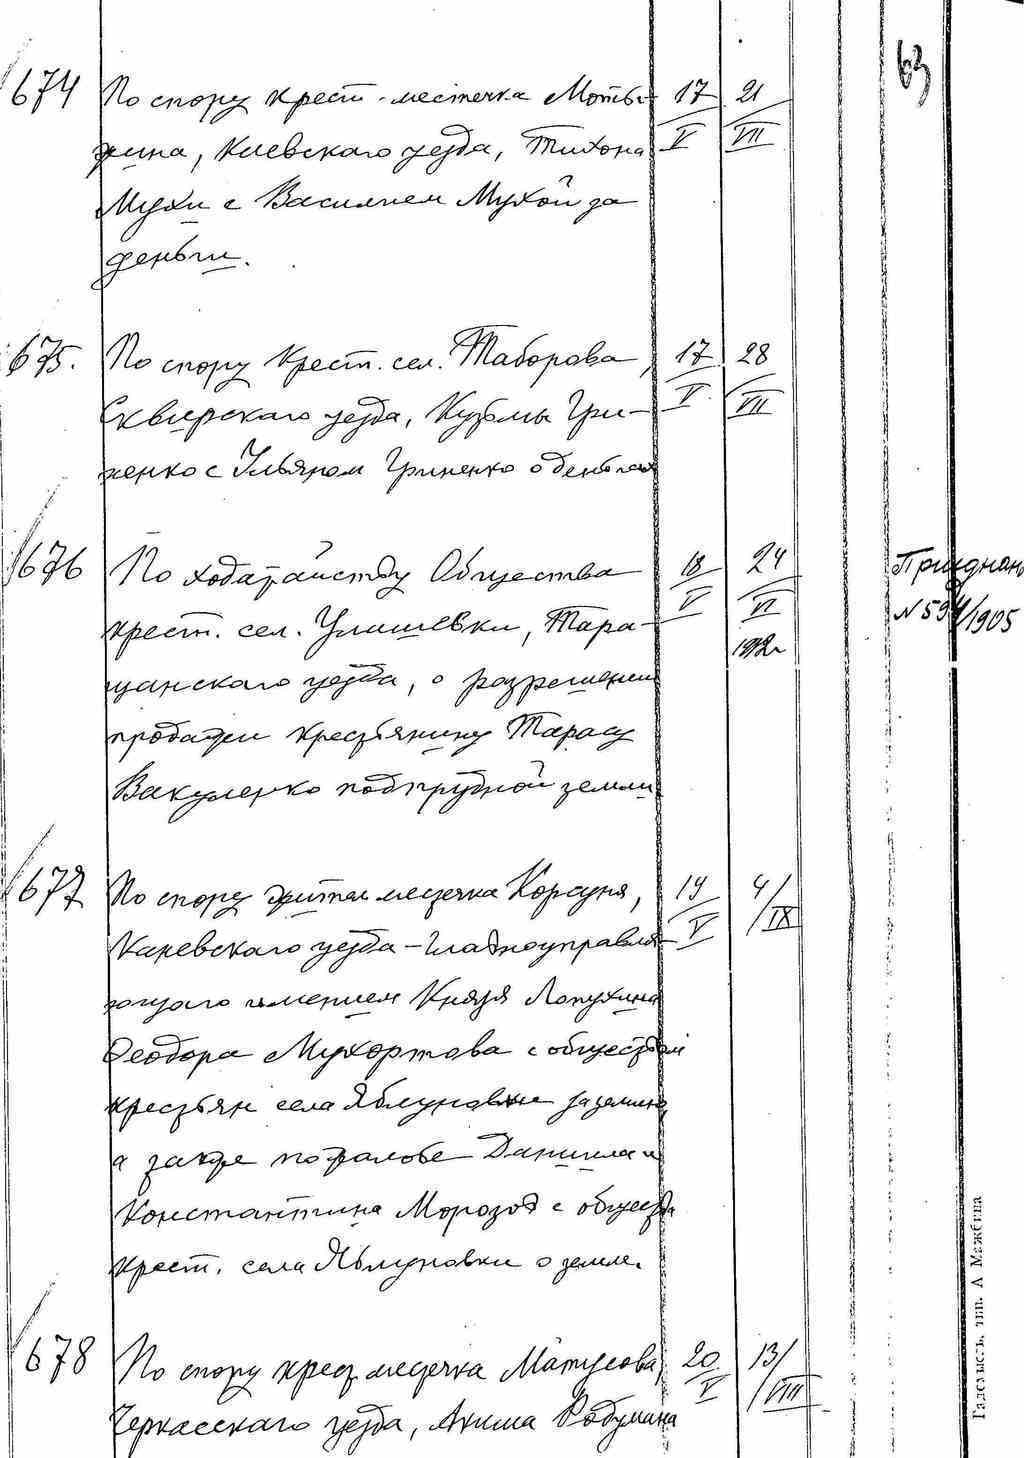 63
674 По спору крест. местечка Моты-
жина, Киевскаго уезда, Тихона
Мухи с Василием Мухой за
деньги.
17/V 21/VII
675. По спору Крест. сел. Таборова,
Сквирскаго уезда, Кузьмы Гри-
ненко с Ульяном Гриненко о деньгах
17/V 28/VII
676 По ходатайству Общества
крест. сел. Улашевки, Тара-
щанскаго уезда, о разрешении
продажи крестьянину Тарасу
Вакуленко подпрудной земли
18/V 24/VI 1912г
N 594/1905
677 По спору жителя местечка Корсуня,
Каневскаго уезда - Главноуправля-
ющаго имением Князя Лопухина
Феодора Мухортова с обществом
крестьян села Яблуновки за землю,
а также по жалобе Даниила и
Константина Мороз с общества
крест. села Яблуновки о земле.
19/V 4/IX
678 По спору крест местечка Матусова,
Черкасскаго уезда, Акима
20/V 13/VIII
тип. А